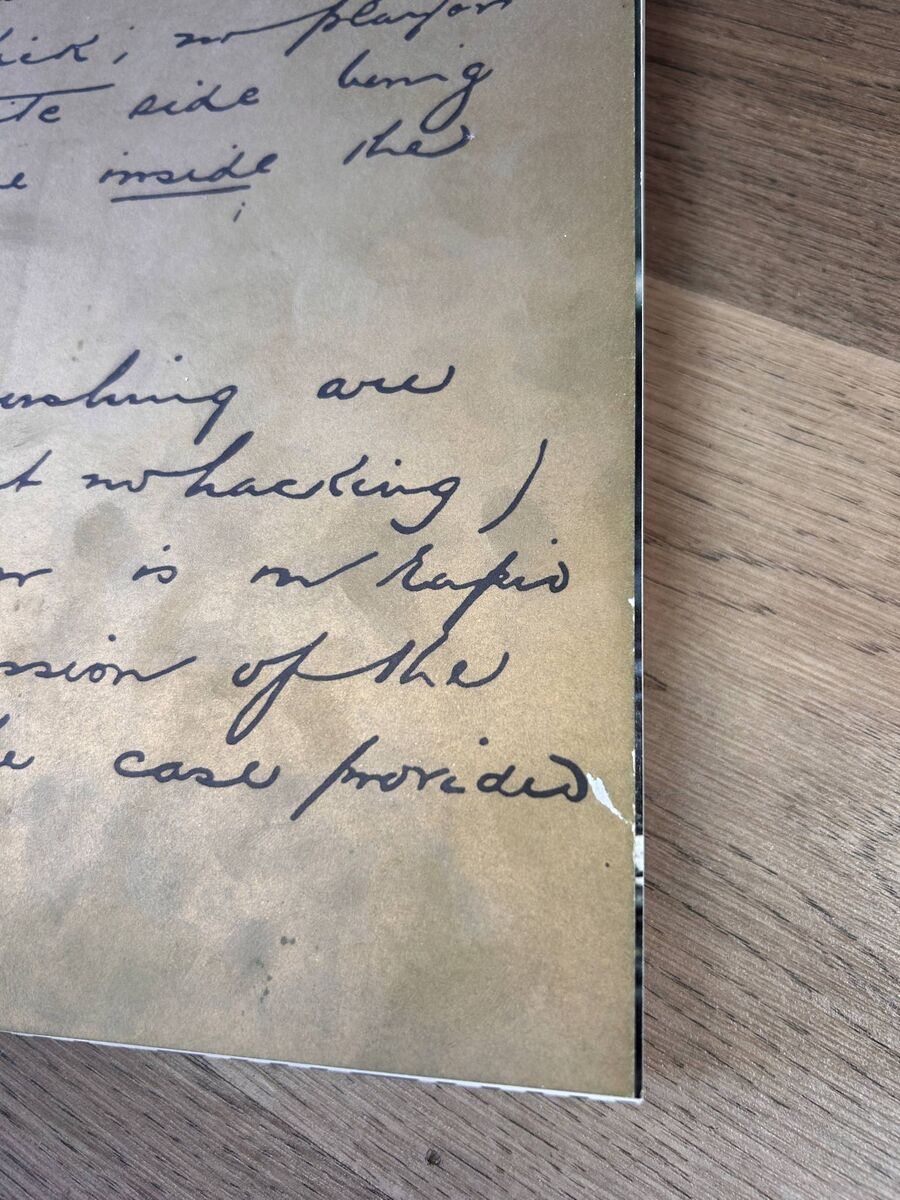 kick; no player on
ite side being
e inside the
ushing are
t no hacking)
is in rapid
ssion of the
e case provided